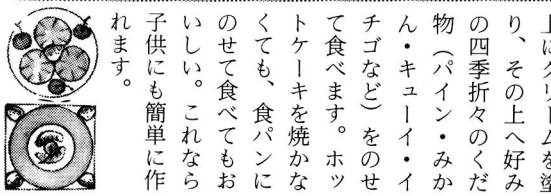 上にクリームを塗
り、その上へ好み
の四季折々のくだ
物（パイン・みか
ん・キューイ・イ
チゴなど）をのせ
て食べます。ホッ
トケーキを焼かな
くても、食パンに
のせて食べてもお
いしい。これなら
子供にも簡単に作
れます。